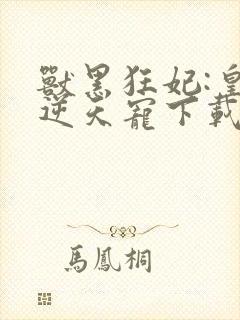 獸黑狂妃:皇
逆天寵下載
馬鳳桐